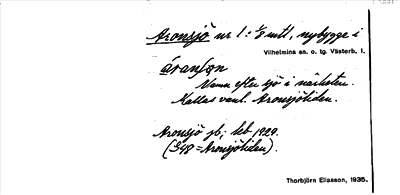 Aronsjö nr 1: 1/8 mtl, nybygge i
Vilhelmina sn. o. tg. Västerb. l.
áranʃøn
Namn efter sjö i närheten.
Kallas vanl. Aronsjöliden.
Aronsjö jb, kb 1929.
(S48 = Aronsjöliden).
Thorbjörn Eliasson, 1935.